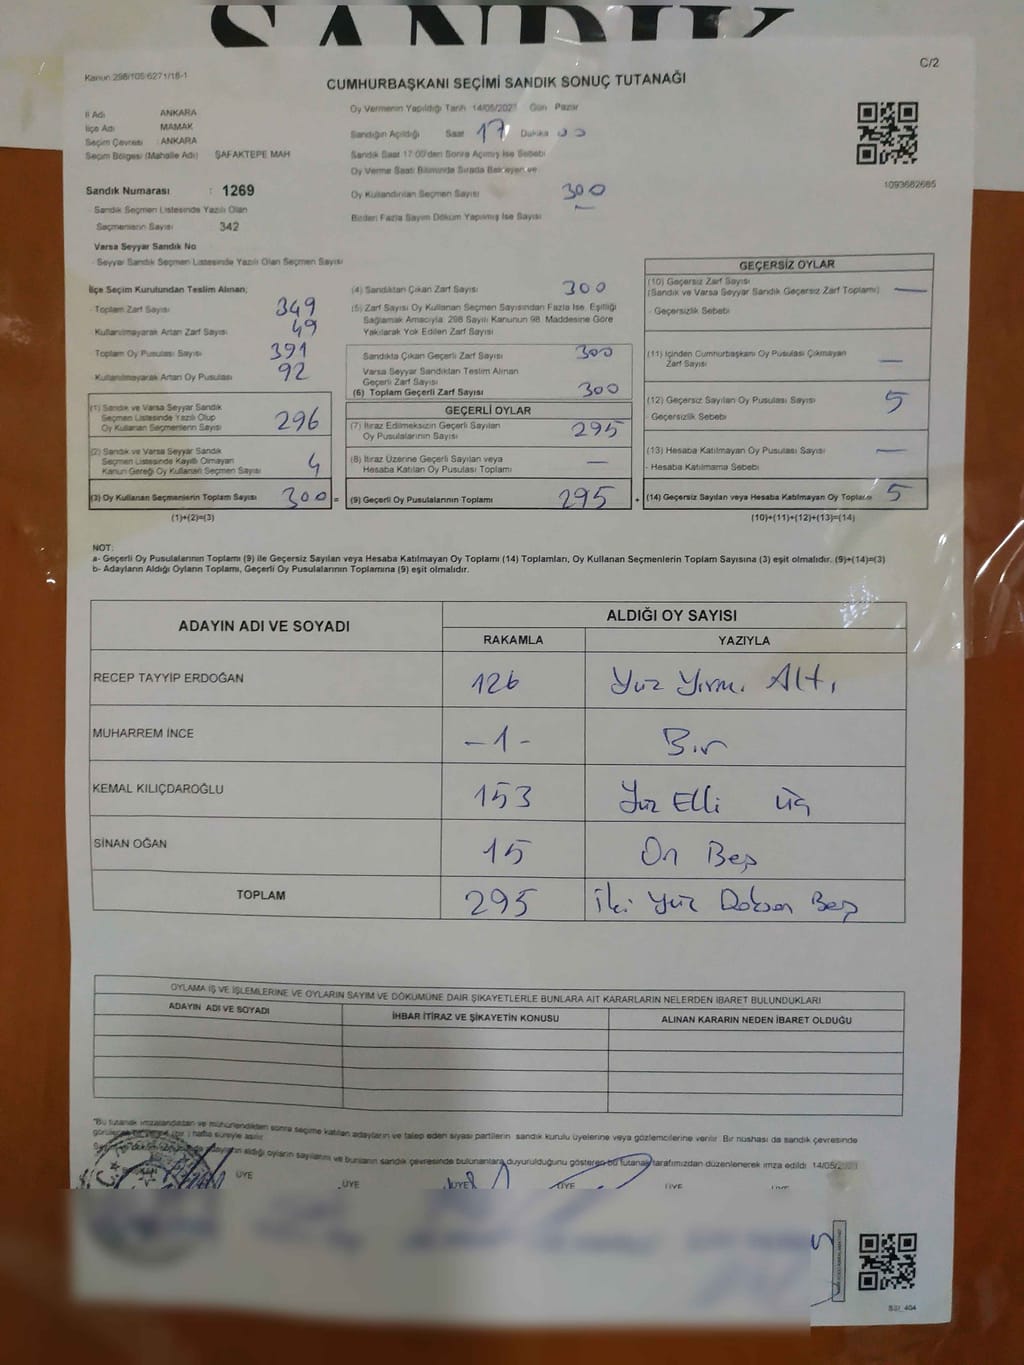 SANDIK
Kanun:298/105-6271/18-1
C/2
CUMHURBAŞKANI SEÇİMİ SANDIK SONUÇ TUTANAĞI
İl Adı ANKARA
İlçe Adı MAMAK
Seçim Çevresi : ANKARA
Seçim Bölgesi (Mahalle Adı) ŞAFAKTEPE MAH
Sandık Numarası : 1269
- Sandık Seçmen Listesinde Yazılı Olan
Seçmenlerin Sayısı 342
Varsa Seyyar Sandık No
- Seyyar Sandık Seçmen Listesinde Yazılı Olan Seçmen Sayısı
Oy Vermenin Yapıldığı Tarih 14/05/2023 Gün Pazar
Sandığın Açıldığı Saat 17 Dakika 00
Sandık Saat 17:00'den Sonra Açılmış İse Sebebi
Oy Verme Saati Bitiminde Sırada Bekleyen ve
Oy Kullandırılan Seçmen Sayısı 300
Birden Fazla Sayım Döküm Yapılmış İse Sayısı —
1093682685
İlçe Seçim Kurulundan Teslim Alınan;
- Toplam Zarf Sayısı 349
- Kullanılmayarak Artan Zarf Sayısı 49
- Toplam Oy Pusulası Sayısı 391
- Kullanılmayarak Artan Oy Pusulası 92
(1) Sandık ve Varsa Seyyar Sandık
Seçmen Listesinde Yazılı Olup
Oy Kullanan Seçmenlerin Sayısı 296
(2) Sandık ve Varsa Seyyar Sandık
Seçmen Listesinde Kayıtlı Olmayan
Kanun Gereği Oy Kullanan Seçmen Sayısı 4
(3) Oy Kullanan Seçmenlerin Toplam Sayısı 300 =
(1)+(2)=(3)
(4) Sandıktan Çıkan Zarf Sayısı 300
(5) Zarf Sayısı Oy Kullanan Seçmen Sayısından Fazla İse, Eşitliği
Sağlamak Amacıyla; 298 Sayılı Kanunun 98. Maddesine Göre
Yakılarak Yok Edilen Zarf Sayısı
Sandıkta Çıkan Geçerli Zarf Sayısı 300
Varsa Seyyar Sandıktan Teslim Alınan
Geçerli Zarf Sayısı
(6) Toplam Geçerli Zarf Sayısı 300
GEÇERLİ OYLAR
(7) İtiraz Edilmeksizin Geçerli Sayılan
Oy Pusulalarının Sayısı 295
(8) İtiraz Üzerine Geçerli Sayılan veya
Hesaba Katılan Oy Pusulası Toplamı —
(9) Geçerli Oy Pusulalarının Toplamı 295 +
GEÇERSİZ OYLAR
(10) Geçersiz Zarf Sayısı
(Sandık ve Varsa Seyyar Sandık Geçersiz Zarf Toplamı) —
- Geçersizlik Sebebi
(11) İçinden Cumhurbaşkanı Oy Pusulası Çıkmayan
Zarf Sayısı —
(12) Geçersiz Sayılan Oy Pusulası Sayısı 5
- Geçersizlik Sebebi
(13) Hesaba Katılmayan Oy Pusulası Sayısı —
- Hesaba Katılmama Sebebi
(14) Geçersiz Sayılan veya Hesaba Katılmayan Oy Toplamı 5
(10)+(11)+(12)+(13)=(14)
NOT:
a- Geçerli Oy Pusulalarının Toplamı (9) ile Geçersiz Sayılan veya Hesaba Katılmayan Oy Toplamı (14) Toplamları, Oy Kullanan Seçmenlerin Toplam Sayısına (3) eşit olmalıdır. (9)+(14)=(3)
b- Adayların Aldığı Oyların Toplamı, Geçerli Oy Pusulalarının Toplamına (9) eşit olmalıdır.
ADAYIN ADI VE SOYADI ALDIĞI OY SAYISI
RAKAMLA YAZIYLA
RECEP TAYYİP ERDOĞAN 126 Yüz Yirmi Altı
MUHARREM İNCE -1- Bir
KEMAL KILIÇDAROĞLU 153 Yüz Elli üç
SİNAN OĞAN 15 On Beş
TOPLAM 295 İki Yüz Doksan Beş
OYLAMA İŞ VE İŞLEMLERİNE VE OYLARIN SAYIM VE DÖKÜMÜNE DAİR ŞİKAYETLERLE BUNLARA AİT KARARLARIN NELERDEN İBARET BULUNDUKLARI
ADAYIN ADI VE SOYADI İHBAR İTİRAZ VE ŞİKAYETİN KONUSU ALINAN KARARIN NEDEN İBARET OLDUĞU
"Bu tutanak imzalandıktan ve mühürlendikten sonra seçime katılan adayların ve talep eden siyasi partilerin sandık kurulu üyelerine veya gözlemcilerine verilir. Bir nüshası da sandık çevresinde
hafta süreyle asılır.
aldığı oyların sayılarını ve bunların sandık çevresinde bulunanlara duyurulduğunu gösteren bu tutanak tarafımızdan düzenlenerek imza edildi. 14/05/2023
ÜYE ÜYE ÜYE ÜYE ÜYE ÜYE